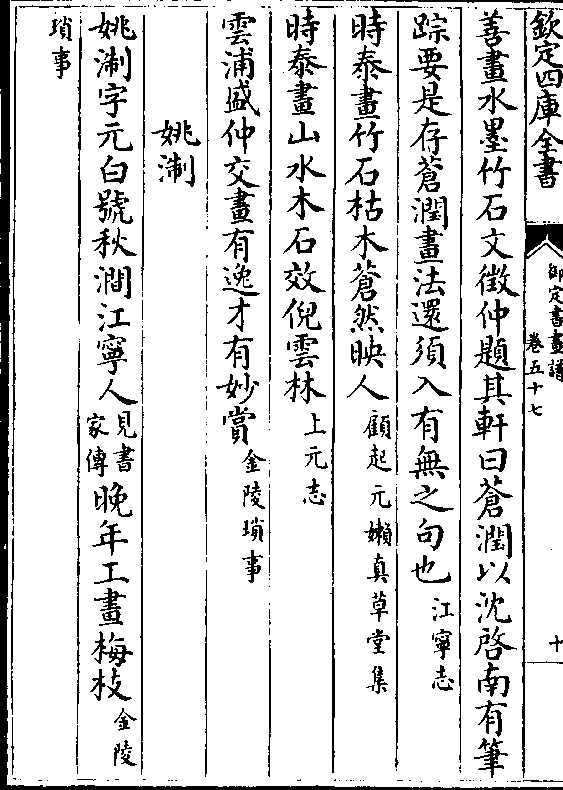 欽定四庫全書
御定書畫譜
卷五十七
十
善畫水墨竹石文徵仲題其軒曰蒼潤以沈啓南有筆
踪要是存蒼潤畫法還須入有無之句也江寧志
時泰畫竹石枯木蒼然映人顧起元嬾真草堂集
時泰畫山水木石效倪雲林上元志
雲浦盛仲交畫有逸才有妙賞金陵瑣事
姚淛
姚淛字元白號秋澗江寧人見書家傳晚年工畫梅枝金陵
瑣事